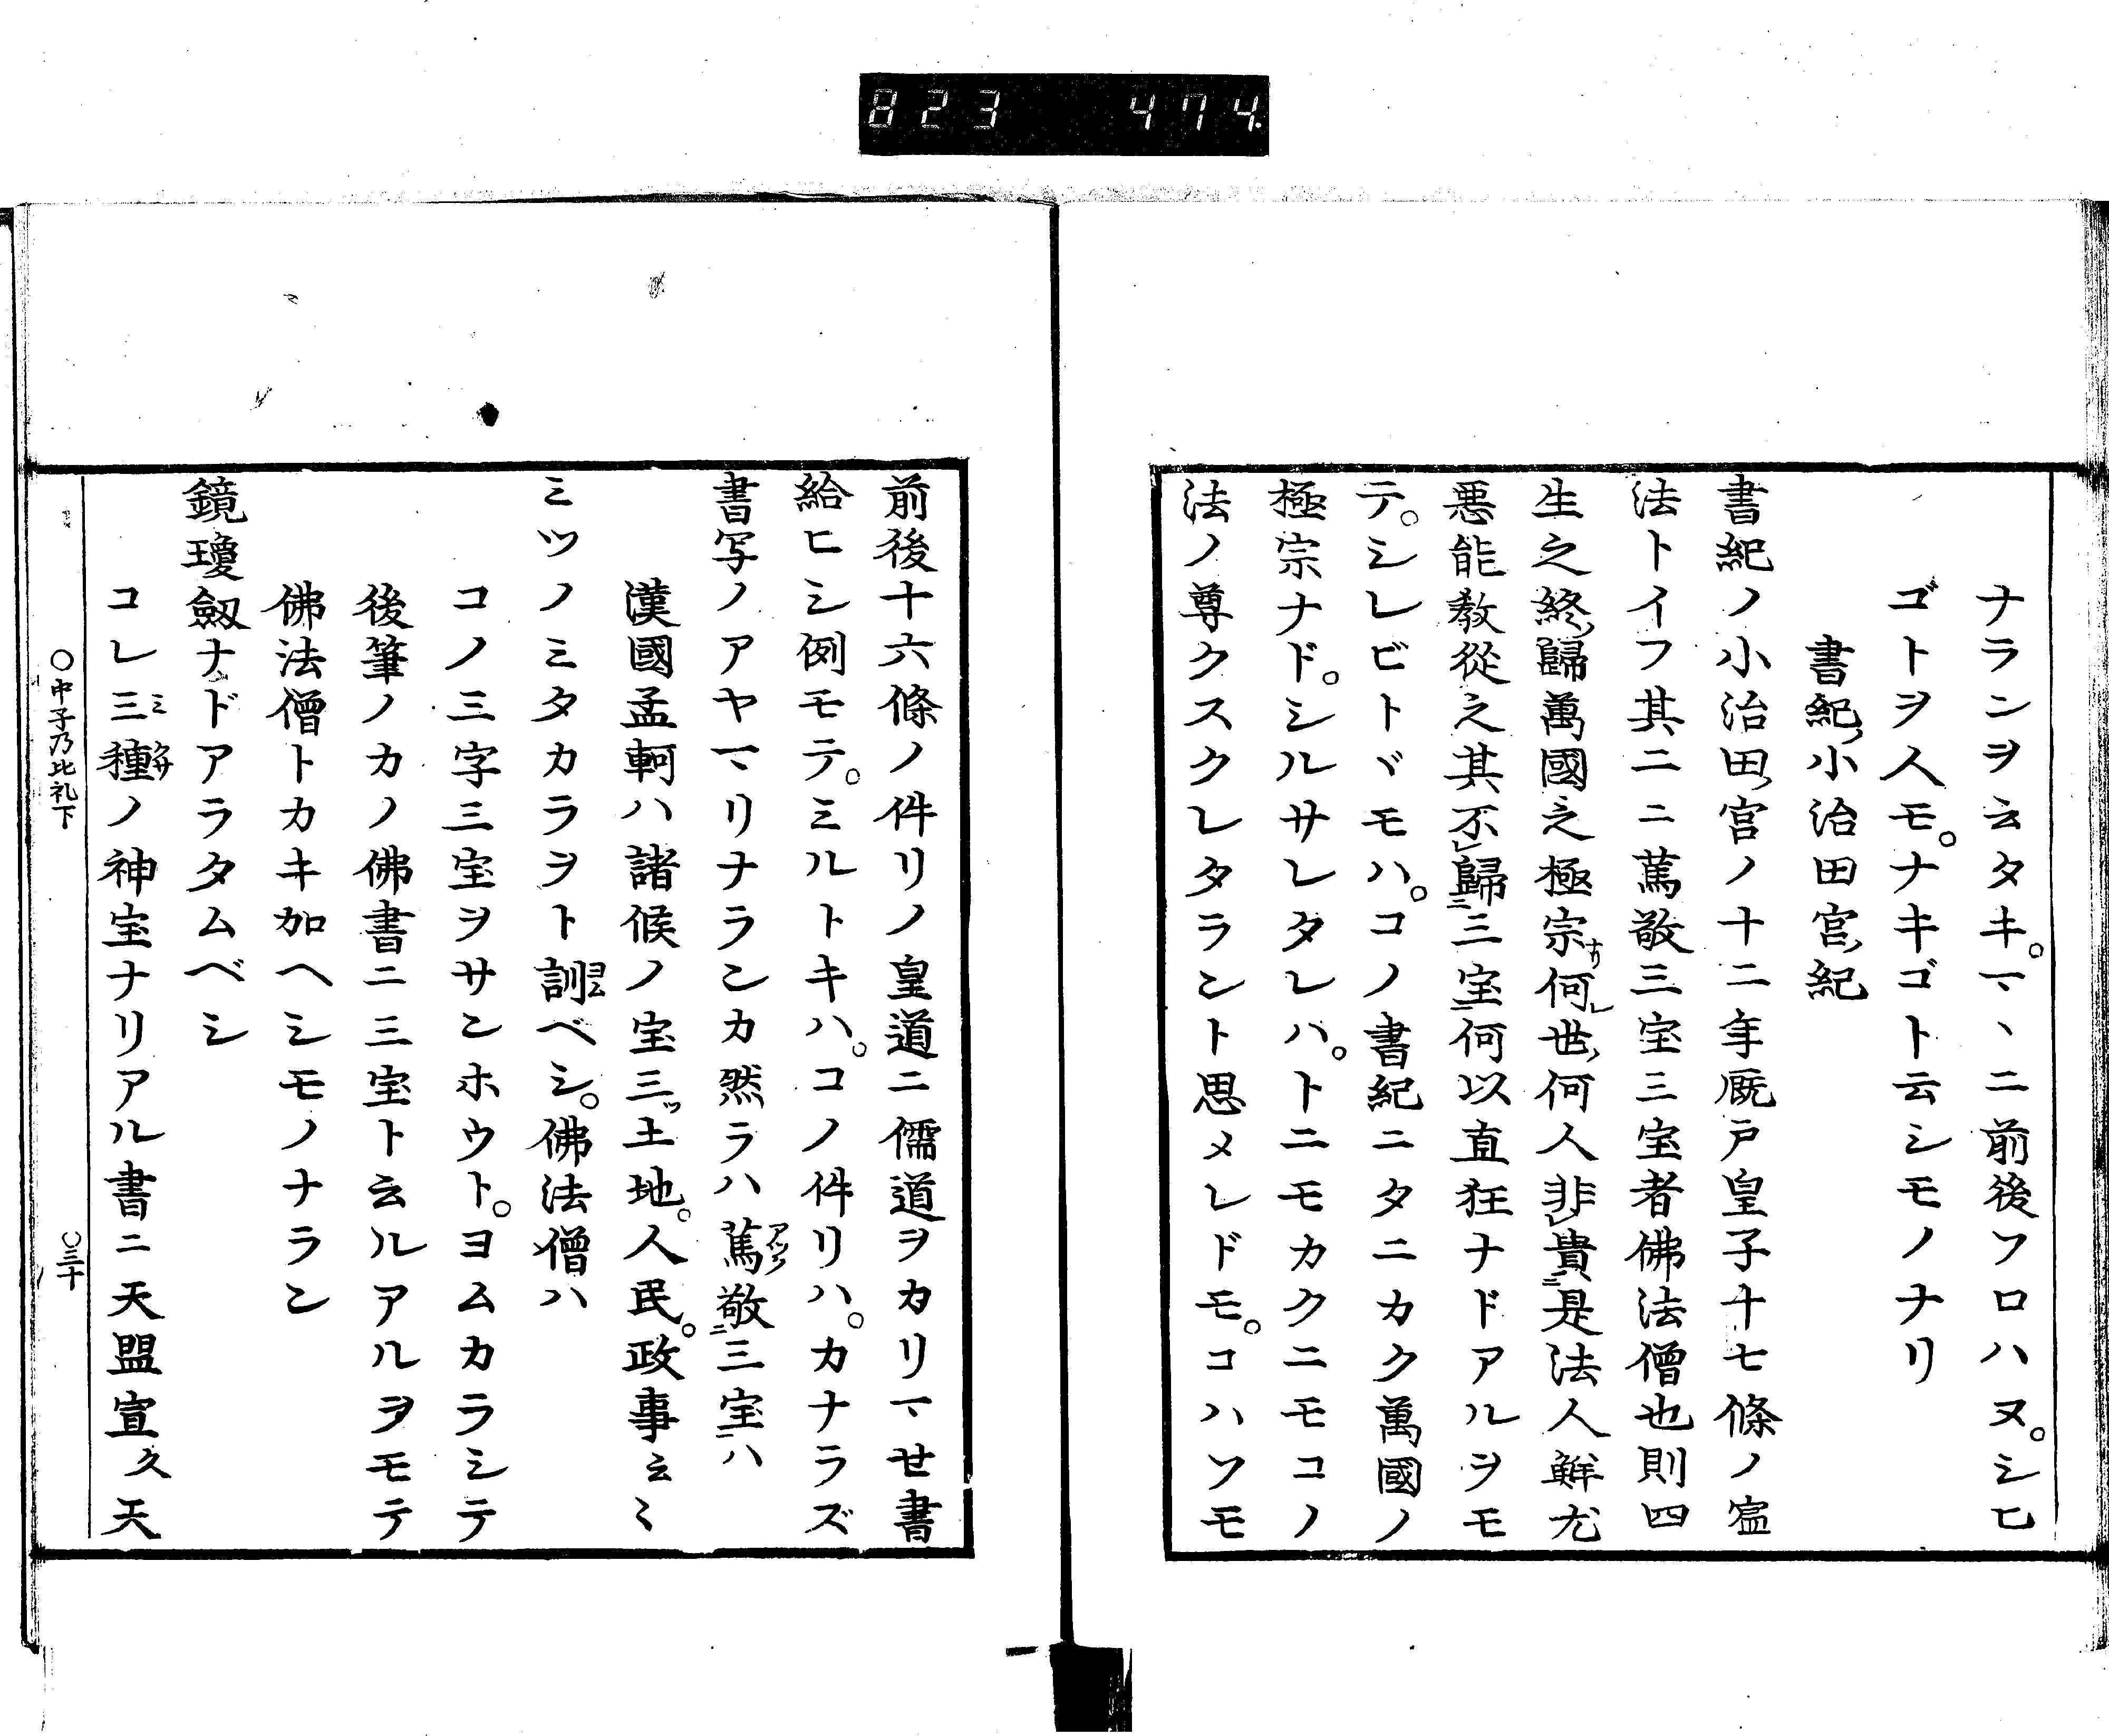 823 474.
ナランヲ云タキ。マヽニ前後ソロハヌ。シヒ
ゴトヲ人モ。ナキゴト云シモノナリ
書紀ノ小治田宮ノ紀
書紀ノ小治田ノ宮ノ十二年厩戸皇子十七條ノ
法トイフ其ノ二ニ萬敬三宝三宝者佛法僧也則四
生之終ノ歸萬國之極宗ナリ何レノ世ノ何人非レ貴ニ是法人鮮尤
悪能教從之其不レ歸ニ三宝ニ何以直狂ナドアルヲモ
テ。シレビトヾモハ。コノ書紀ニタニカク萬國ノ
極宗ナド。シルサレタレハ。トニモカクニモコノ
法ノ尊クスクレタラント思メレドモ。コハソモ
前後十六條ノ件リノ皇道ニ儒道ヲカリマせ書
給ヒシ例モテ。ミルトキハ。コノ件リハ。カナラズ
書写ノアヤマリナランカ然ラハ萬敬ニ三宝ニハ
漢國孟軻ハ諸候ノ宝三ツ土地。人民。政事云〻
ミツノミタカラヲト訓ヨムベシ。佛法僧ハ
コノ三字三宝ヲサンホウト。ヨムカラシテ
後筆ノカノ佛書ニ三宝ト云ルアルヲモテ
佛法僧トカキ加ヘシモノナラン
鏡瓊劔ナドアラタムベシ
コレ三ミ種クサノ神宝ナリアル書ニ天盟宣久天
〇中子乃比礼下
〇三十